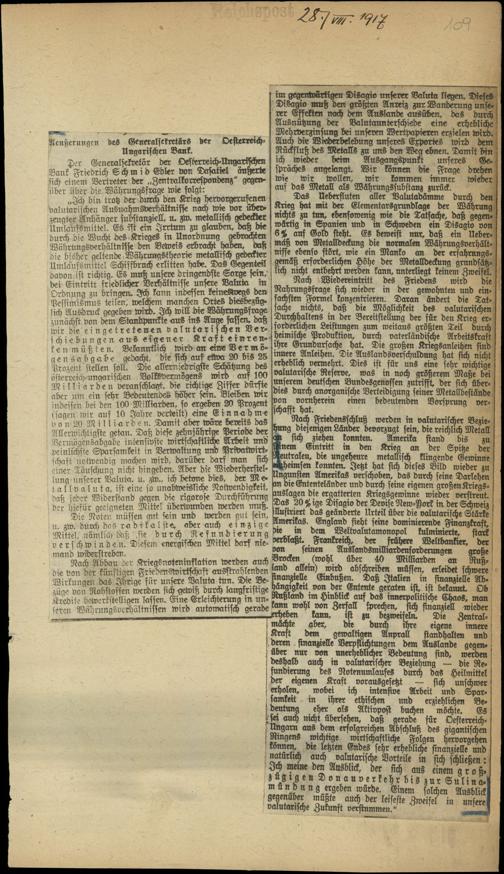 Reichspost
28./VIII. 1917
109
Aeußerungen des Generalsekretärs der Oesterreich-
Ungarischen Bank.
Der Generalsekretär der Oesterreich-Ungarischen
Bank Friedrich Schmid Edler von Dasatiel äußerte
sich einem Vertreter der „Zentralkorrespondenz“ gegen-
über über die Währungsfrage wie folgt:
„Ich bin trotz der durch den Krieg hervorgerufenen
valutarischen Ausnahmsverhältnisse nach wie vor über-
zeugter Anhänger substanziell, u. zw. metallisch gedeckter
Umlaufsmittel. Es ist ein Irrtum zu glauben, daß die
durch die Wucht des Krieges in Unordnung gebrachten
Währungsverhältnisse den Beweis erbracht haben, daß
die bisher geltende Währungstheorie metallisch gedeckter
Umlaufsmittel Schiffbruch erlitten habe. Das Gegenteil
davon ist richtig. Es muß unsere dringendste Sorge sein,
bei Eintritt friedlicher Verhältnisse unsere Valuta in
Ordnung zu bringen. Ich kann indessen keineswegs den
Pessimismus teilen, welchem manchen Ortes diesbezüg-
lich Ausdruck gegeben wird. Ich will die Währungsfrage
zunächst von dem Standpunkte aus ins Auge fassen, daß
wir die eingetretenen valutarischen Ver-
schiebungen aus eigener Kraft einren-
ken müßten. Bekanntlich wird an eine Vermö-
gensabgabe gedacht, die sich auf etwa 20 bis 25
Prozent stellen soll. Die allerniedrigste Schätzung des
österreich-ungarischen Volksvermögens wird auf 100
Milliarden veranschlagt, die richtige Ziffer dürfte
aber um ein sehr Bedeutendes höher sein. Bleiben wir
indessen bei den 100 Milliarden, so ergeben 20 Prozent
(sagen wir auf 10 Jahre verteilt) eine Einnahme
von 20 Milliarden. Damit aber wäre bereits das
Allerwichtigste getan. Daß diese zehnjährige Periode der
Vermögensabgabe intensivste wirtschaftliche Arbeit und
peinlichste Sparsamkeit in Verwaltung und Privatwirt-
schaft notwendig machen wird, darüber darf man sich
einer Täuschung nicht hingeben. Aber die Wiederherstel-
lung unserer Valuta, u. zw., ich betone dies, der Me-
tallvaluta, ist eine so unabweisliche Notwendigkeit,
daß jeder Widerstand gegen die rigorose Durchführung
der hiefür geeigneten Mittel überwunden werden muß.
Die Noten müssen gut sein und werden gut sein,
u. zw. durch das radikalste, aber auch einzige
Mittel, nämlich daß sie durch Refundierung
verschwinden. Diesem energischen Mittel darf nie-
mand widerstreben.
Nach Abbau der Kriegsnoteninflation werden auch
die von der künftigen Friedenswirtschaft ausstrahlenden
Wirkungen das Übrige für unsere Valuta tun. Die Be-
züge von Rohstoffen werden sich gewiß durch langfristige
Kredite bewerkstelligen lassen. Eine Erleichterung in un-
seren Währungsverhältnissen wird automatisch gerade
im gegenwärtigen Disagio unserer Valuta liegen. Dieses
Disagio muß den größten Anreiz zur Wanderung unse-
rer Effekten nach dem Auslande ausüben, das durch
Ausnützung der Valutaunterschiede eine erhebliche
Mehrverzinsung bei unseren Wertpapieren erzielen wird.
Auch die Wiederbelebung unseres Exportes wird dem
Rückfluß des Metalls zu uns den Weg ebnen. Damit bin
ich wieder beim Ausgangspunkt unseres Ge-
spräches angelangt. Wir können die Frage drehen
wie wir wollen, wir kommen immer wieder
auf das Metall als Währungssubstanz zurück.
Das Ueberfluten aller Valutadämme durch den
Krieg hat mit der Elementargrundlage der Währung
nichts zu tun, ebensowenig wie die Tatsache, daß gegen-
wärtig in Spanien und in Schweden ein Disagio von
6% auf Gold steht. Es beweist nur, daß ein Ueber-
maß von Metalldeckung die normalen Währungsverhält-
nisse ebenso stört, wie ein Manko an der erfahrungs-
gemäß erforderlichen Höhe der Metalldeckung grundsätz-
lich nicht entbehrt werden kann, unterliegt keinem Zweifel.
Nach Wiedereintritt des Friedens wird die
Nahrungsfrage sich wieder in der gewohnten und ein-
fachsten Formel konzentrieren. Daran ändert die Tat-
sache nichts, daß die Möglichkeit des valutarischen
Durchhaltens in der Bereitstellung der für den Krieg er-
forderlichen Leistungen zum weitaus größten Teil durch
heimische Produktion, durch vaterländische Arbeitskraft
ihre Grundursache hat. Die großen Kriegsanleihen sind
innere Anleihen. Die Auslandsverschuldung hat sich nicht
erheblich vermehrt. Dies ist für uns eine sehr wichtige
valutarische Reserve, was in noch größerem Maße bei
unserem deutschen Bundesgenossen zutrifft, der sich über-
dies durch unorganische Verteidigung seiner Metallbestände
von vornherein einen bedeutenden Vorsprung ver-
schafft hat.
Nach Friedensschluß werden in valutarischer Bezie-
hung diejenigen Länder bevorzugt sein, die reichlich Metall
an sich ziehen konnten. Amerika stand bis zu
seinem Eintritt in den Krieg an der Spitze der
Neutralen, die ungeheure metallisch klingende Gewinne
einheimsen konnten. Jetzt hat sich dieses Bild wieder zu
Ungunsten Amerikas verschoben, das durch seine Darlehen
an die Ententeländer und durch seine eigenen großen Kriegs-
auslagen die ergatterten Kriegsgewinne wieder verstreut.
Das 20%ige Disagio der Devise New-York in der Schweiz
illustriert das geänderte Urteil über die valutarische Stärke
Amerikas. England sieht seine dominierende Finanzkraft,
die in dem Weltvalutamonopol kulminierte, stark
verblaßt. Frankreich, der frühere Weltbankier, der
von seinen Auslandsmilliardenforderungen große
Brocken (wohl über 40 Milliarden an Ruß-
land allein) wird abschreiben müssen, erleidet schwere
finanzielle Einbußen. Daß Italien in finanzielle Ab-
hängigkeit von der Entente geraten ist, ist bekannt. Ob
Rußland im Hinblick auf das innerpolitische Chaos, man
kann wohl von Zerfall sprechen, sich finanziell wieder
erheben kann, ist zu bezweifeln. Die Zentral-
mächte aber, die durch ihre eigene innere
Kraft dem gewaltigen Anprall standhalten und
deren finanzielle Verpflichtungen dem Auslande gegen-
über nur von unerheblicher Bedeutung sind, werden
deshalb auch in valutarischer Beziehung — die Re-
fundierung des Notenumlaufes durch das Heilmittel
der eigenen Kraft vorausgesetzt — sich unschwer
erholen, wobei ich intensive Arbeit und Spar-
samkeit in ihrer ethischen und erziehlichen Be-
deutung eher als Aktivpost buchen möchte. Es
sei auch nicht übersehen, daß gerade für Oesterreich-
Ungarn aus dem erfolgreichen Abschluß des gigantischen
Ringens wichtige wirtschaftliche Folgen hervorgehen
können, die letzten Endes sehr erhebliche finanzielle und
natürlich auch valutarische Vorteile in sich schließen:
Ich meine den Ausblick, der sich aus einem groß-
zügigen Donauverkehr bis zur Sulina-
mündung ergeben würde. Einem solchen Ausblick
gegenüber müßte auch der leiseste Zweifel in unsere
valutarische Zukunft verstummen.“